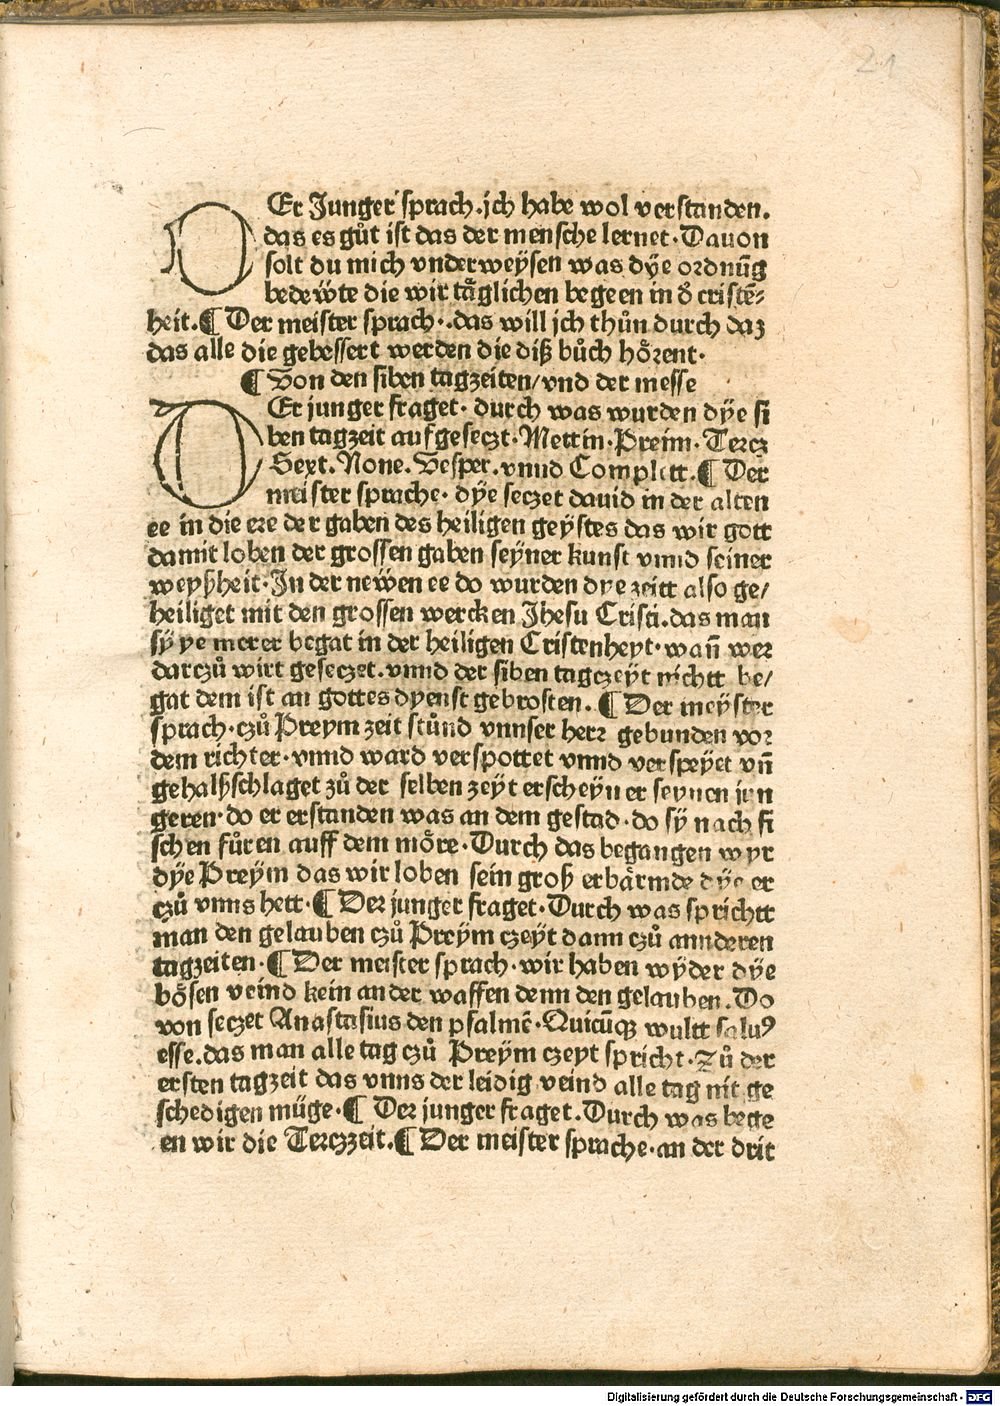 21
DEr Junger sprach.ich habe wol verstanden.
das es gůt ist das der mensche lernet·Dauon
solt du mich vnderweÿsen was dÿe ordnūg
bedeẅte die wir täglichen begeen in d̕ cristē⸗
heit.¶ Der meister sprach·.das will jch thůn durch daz
das alle die gebessert werden die diß bůch hörent·
¶ Von den siben tagzeiten/vnd der messe
DEr junger fraget· durch was wurden dÿe si
ben tagzeit aufgeseczt·Mettin·Preim·Tercz
Sext.None.Vesper.vnnd Complett.¶ Der
meister sprache· dÿe seczet dauid in der alten
ee in die ere der gaben des heiligen geÿstes das wir gott
damit loben der grossen gaben seÿner kunst vnnd seiner
weyßheit·In der neẅen ee do wurden dye zeitt also ge/
heiliget mit den grossen wercken Jhesu Cristi.das man
sÿ ye merer begat in der heiligen Cristenheyt·wañ wer
darczů wirt geseczet.vnnd der siben tagczeÿt nichtt be/
gat dem ist an gottes dyenst gebrosten.¶ Der meÿster
sprach·czů Preym zeit stůnd vnnser herr gebunden vor
dem richter·vnnd ward verspottet vnnd verspeÿet vñ
gehalßschlaget zů der selben zeÿt erscheÿn er seynen jun
geren·do er erstanden was an dem gestad·do sÿ nach fi
schen fůren auff dem möre·Durch das begangen wyr
dÿe Preÿm das wir loben sein groß erbärmde dÿe er
czů vnns hett·¶ Der junger fraget·Durch was sprichtt
man den gelauben czů Preÿm czeÿt dann czů annderen
tagzeiten·¶ Der meister sprach·wir haben wÿder dÿe
bösen veind kein ander waffen denn den gelauben.Do
von seczet Anastasius den psalmē·Quicūqꝫ wultt saluꝰ
esse.das man alle tag czů Preÿm czeyt spricht·Zů der
ersten tagzeit das vnns der leidig veind alle tag nit ge
schedigen müge·¶ Der junger fraget.Durch was bege
en wir die Terczzeit.¶ Der meister sprache·an der drit
Digitalisierung gefördert durch die Deutsche Forschungsgemeinschaft - DFG